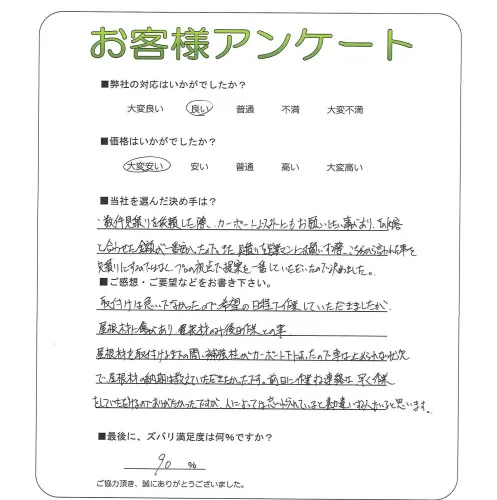 お客様アンケート
■弊社の対応はいかがでしたか?
大変良い 良い 普通 不満 大変不満
■価格はいかがでしたか?
大変安い 安い 普通 高い 大変高い
■当社を選んだ決め手は?
数件見積りを依頼した際、カーポート以外にもお願いしたい事があり、
合わせた金額が一番安かったので。また、見積りを営業マンにお願いした際、こちらから言われた事を
見積りにするのではなく、プロの視点で提案を一番していただいたので決めました。
■ご感想・ご要望などをお書き下さい。
取付けは急いでなかったので希望の日程で作業していただきましたが、
屋根材に傷があり、屋根材のみ後日作業との事。
屋根材を取付けるまでの間、補強柱がカーポート下にあったので車は止められない状況
で、屋根材の納期は教えていただきたかったです。前日に作業お連絡は早く作業
をしていただけるのでありがたかったですが、人によっては忘れられていると勘違いする人がいると思います。
■最後に、ズバリ満足度は何%ですか?
90 %
ご協力頂き、誠にありがとうございました。